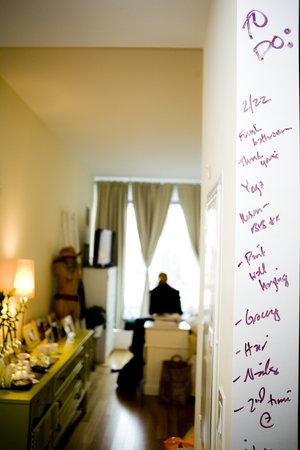 TO
DO:
2/22
Finish
bathroom
Thank
yous
Yoga
- Paint
wall
hanging
- Grocery
- Hair
- Nails
- 2nd time
@